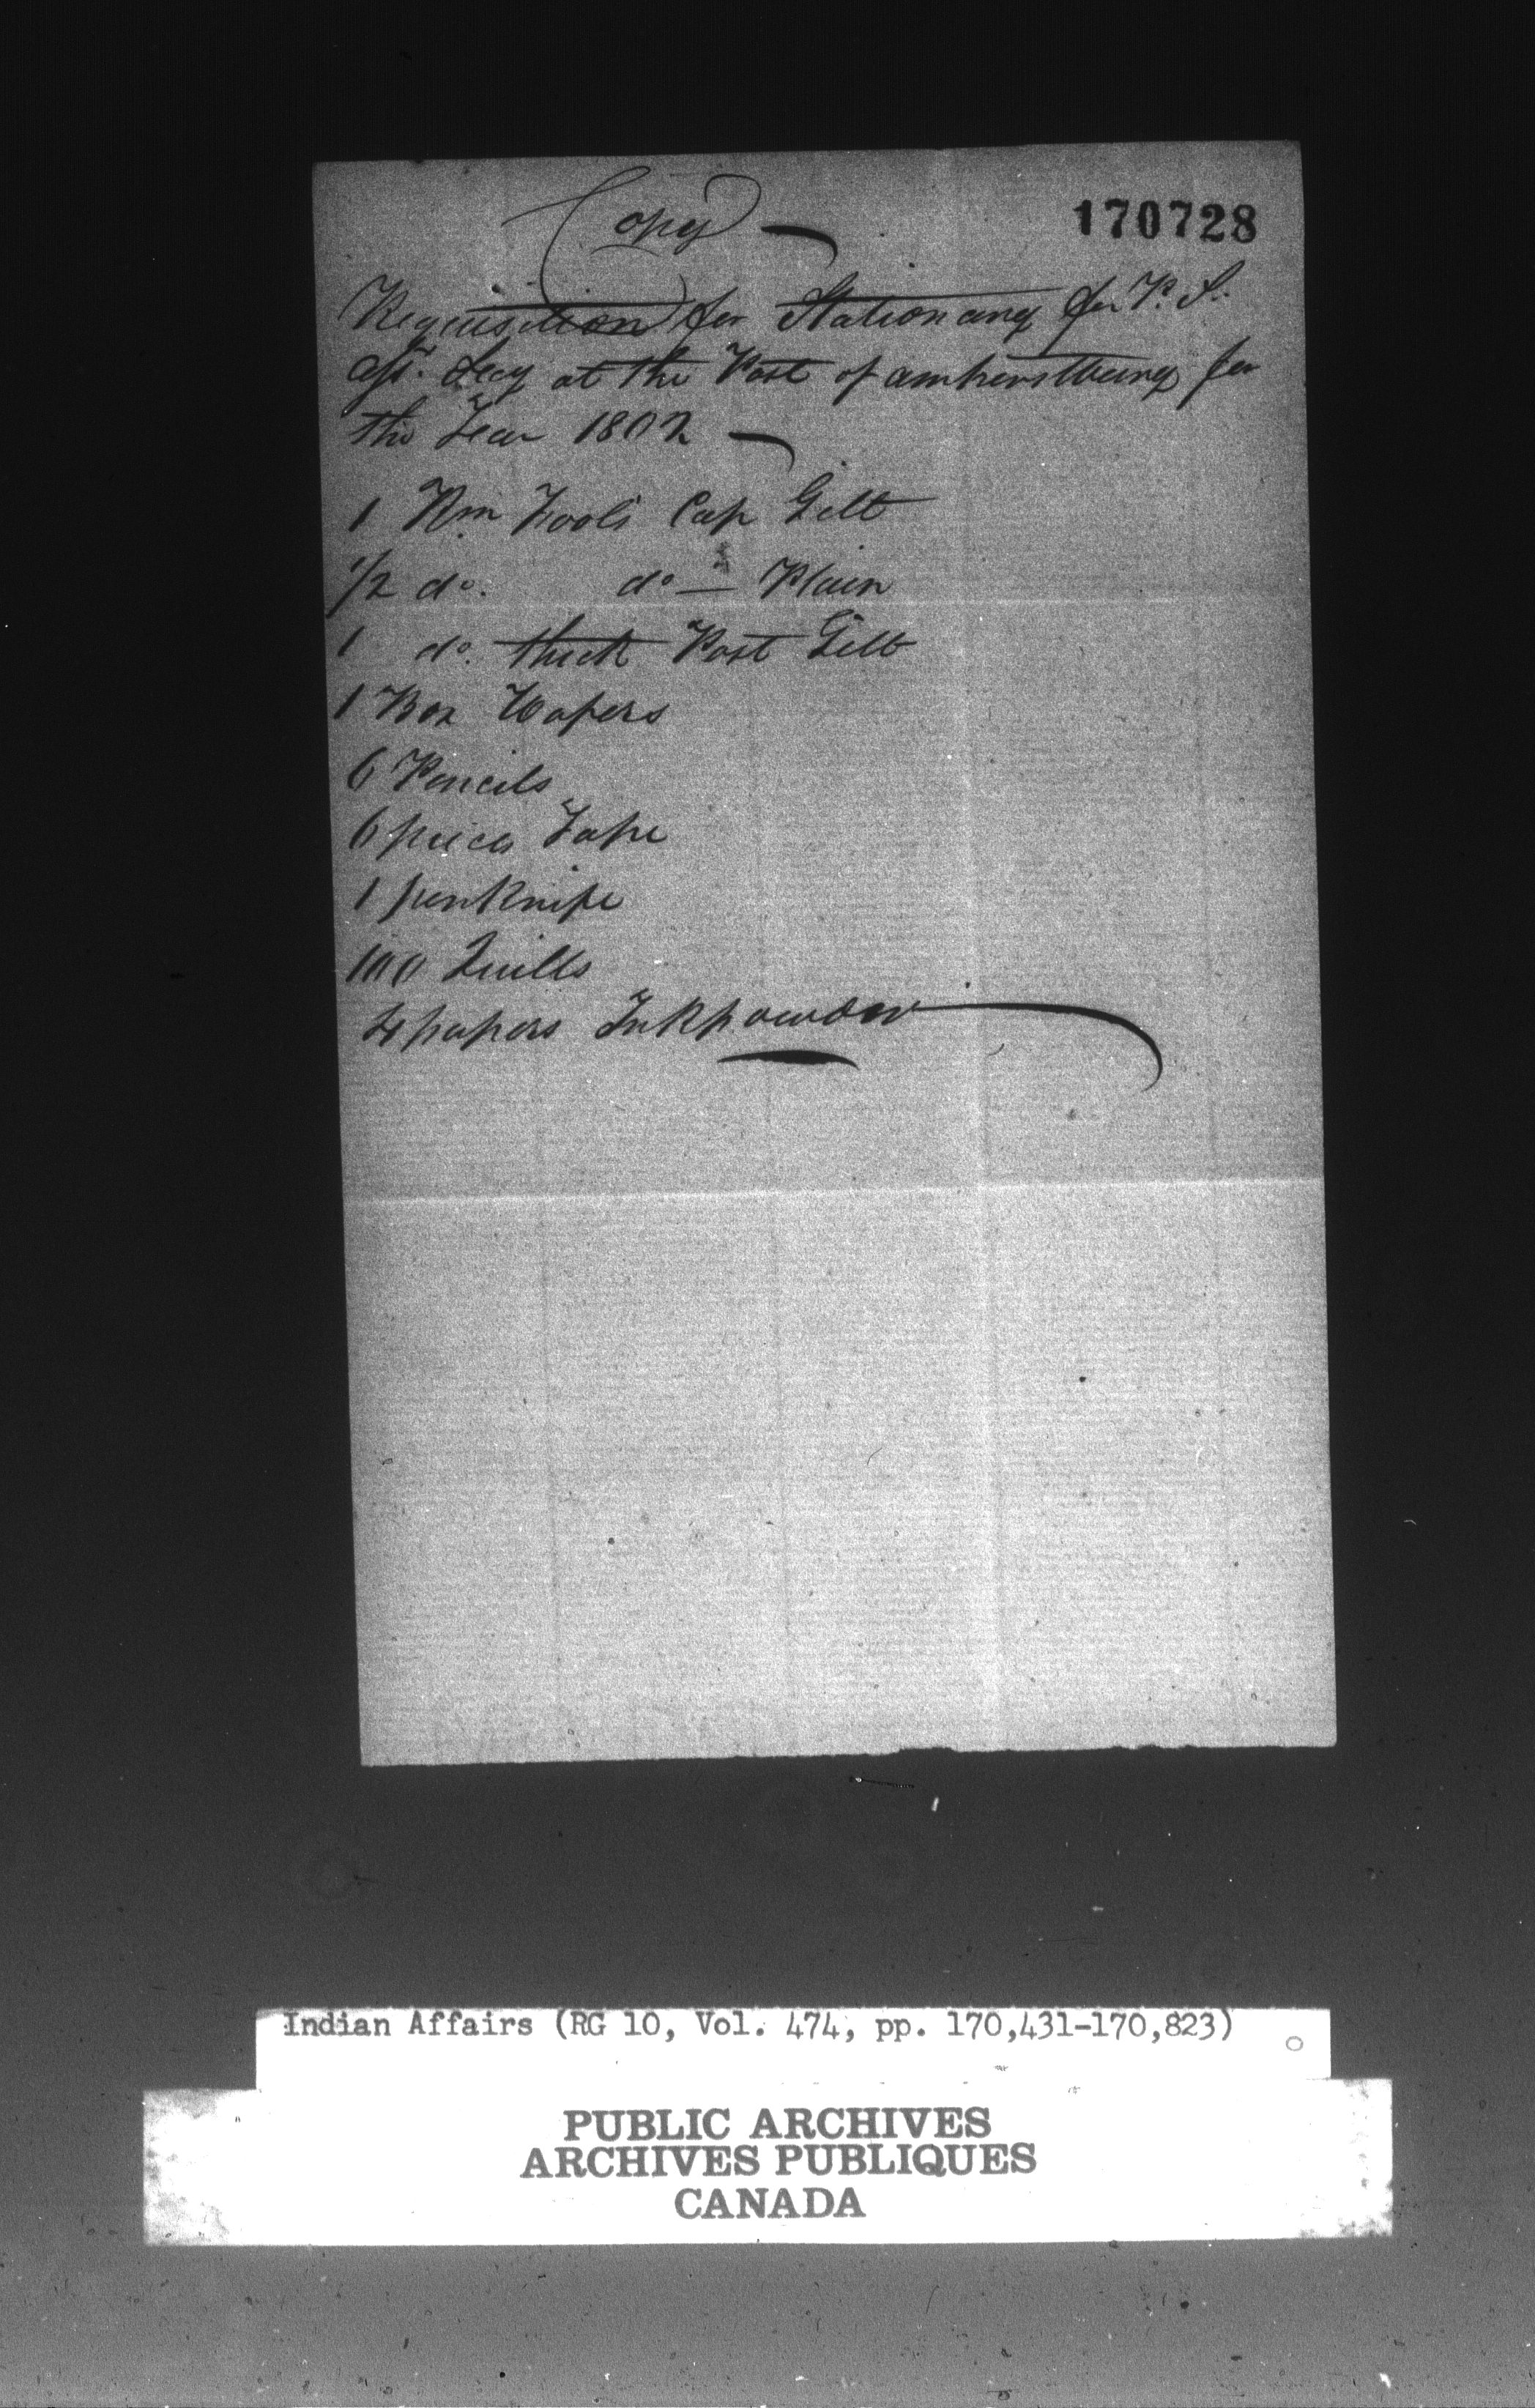 Copy
170728
Requisition for Stationary for P. S.
Asst. Secy at the Post of Amherstburg for
the Year 1802
1 Rm Fools Cap Gilt
1/2 do. do — Plain
1 do. thick Post Gilt
1 Box Wafers
6 Pencils
6 pieces Tape
1 penknife
100 Quills
4 papers Inkpowder
Indian Affairs (RG 10, Vol. 474, pp. 170,431-170,823)
PUBLIC ARCHIVES
ARCHIVES PUBLIQUES
CANADA